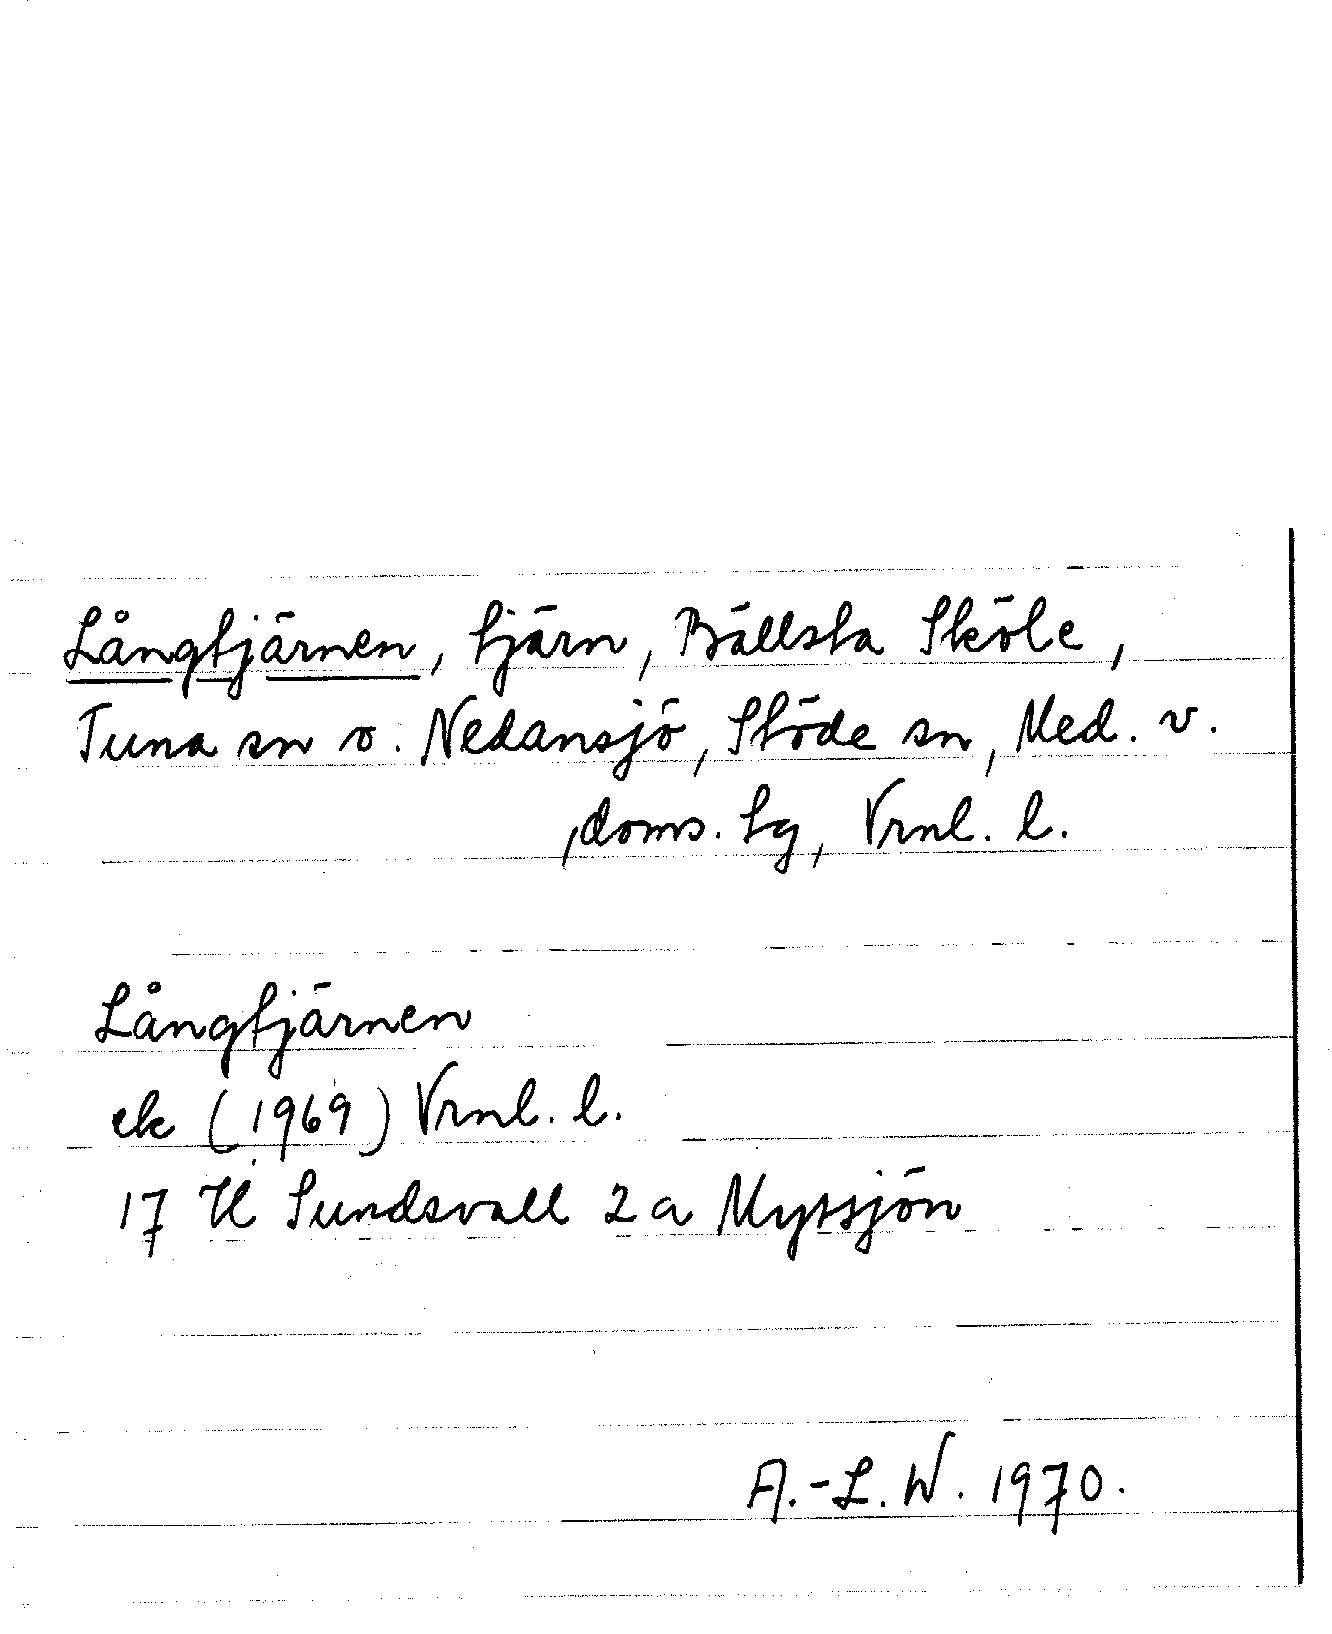 Långtjärnen, tjärn, Bällsta Sköle,
Tuna sn o. Nedansjö, Stöde sn, Med. v.
,doms. tg, Vrnl. l.
Långtjärnen
ek (1969) Vrnl. l.
17 H Sundsvall 2 a Mytsjön
A.-L. W. 1970.